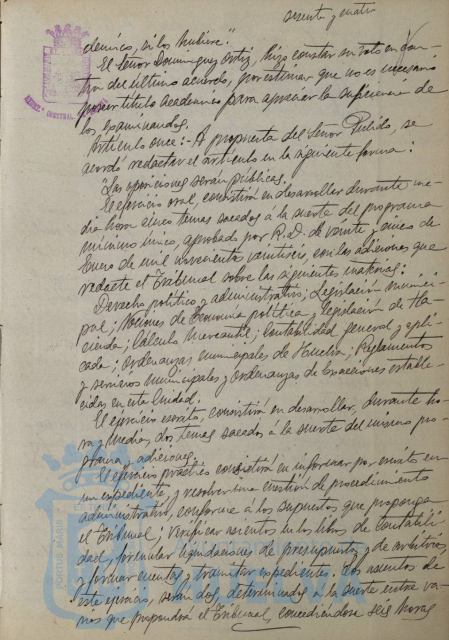 sesenta y cuatro
démico, si los hubiere".
El Señor Dominguez Ortiz, hizo constar su voto en con-
tra del último acuerdo, por estimar que no es necesario
poseer título académico para apreciar la suficiencia de
los examinandos.
Artículo once:- A propuesta del Señor Pulido, se
acordó redactar el artículo en la siguiente forma:
"Las oposiciones serán públicas.
El ejercicio oral, consistirá en desarrollar durante me-
dia hora cinco temas sacados á la suerte del programa
mínimo único, aprobado por R. D. de veinte y cinco de
Enero de mil novecientos veintiseis, con las adiciones que
redacte el Tribunal sobre las siguientes materias:
Derecho político y administrativo; Legislación munici-
pal; Nociones de Economía política y legislación de Ha-
cienda; Cálculo Mercantil; Contabilidad general y apli-
cada; Ordenanzas municipales de Huelva; Reglamentos
y servicios municipales y Ordenanzas de Exacciones estable-
cidas en esta Ciudad.
El ejercicio escrito, consistirá en desarrollar, durante ho-
ra y media, dos temas sacados á la suerte del mismo pro-
grama y adiciones.
El ejercicio práctico consistirá en informar por escrito en
un expediente, y resolver una cuestión de procedimiento
administrativo, conforme a los supuestos que proponga
el Tribunal; verificar asientos en los libros de Contabili-
dad, formular liquidaciones de presupuestos y de arbitrios
y formar cuentas y tramitar expedientes. Los asientos de
este ejercicio, serán dos, determinados á la suerte entre va-
rios que propondrá el Tribunal, concediéndose seis horas
PORTUS MARIS